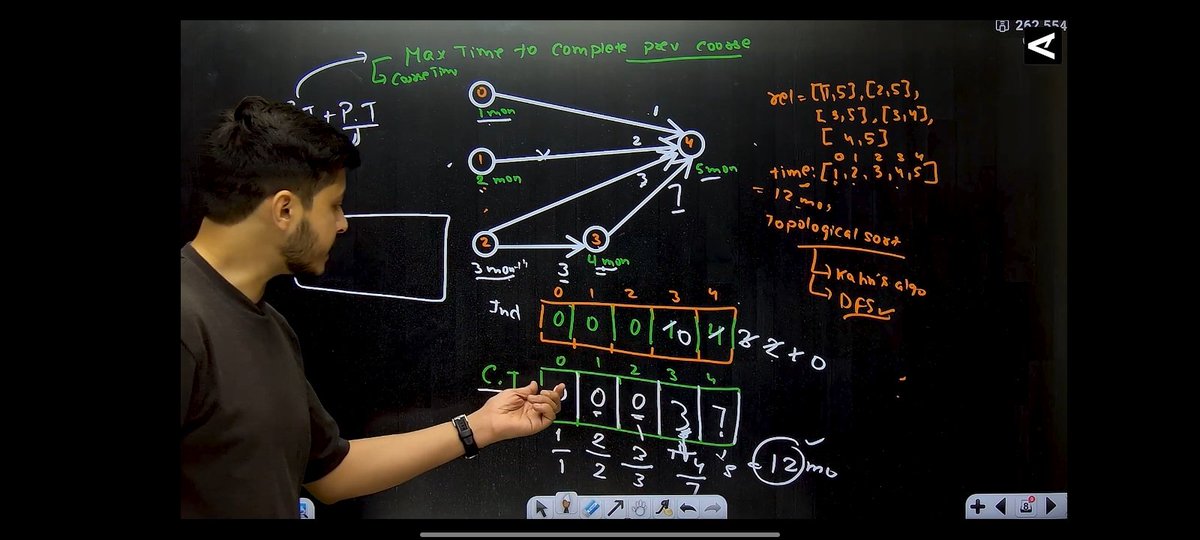 262 554
Max Time to complete prev coorse
CourseTime
+ P.T
0
1 mon
1
2 mon
2
3 mon
3
4 mon
4
5 mon
1
2
3
7
3
rel = [[1,5], [2,5],
[3,5], [3,4],
[4,5]
0 1 2 3 4
time: [1, 2, 3, 4, 5]
= 12 mo,
Topological sort
Kahn's algo
DFS
0 1 2 3 4
Ind 0 0 0 1 0 4 3 2 1 0
0 1 2 3 4
C.T 0 0 0 3 7
1 2 3 4 5 = 12 mo
1 2 3 7